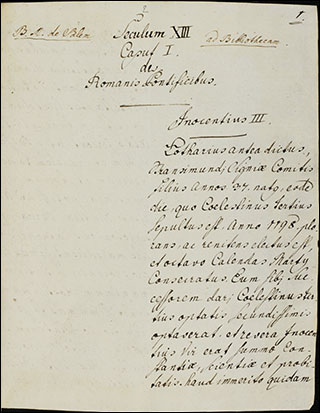 2
1.
B. A. de Bken
Sæculum XIII
ad Bibliothecam
Caput I.
de
Romanis Pontificibus.
Inocentius III.
Lotharius antea dictus,
Transimundi Signiæ Comitis
filius Annos 37. natq, eode
die, quo Coelestinus tertius
sepultus est, Anno 1198. plo-
rans, ac renitens electus est
et octavo Calendas Marty
Consecratus. Eum sibj suc-
cessorem darj Coelestinus ter-
tius optatis secundissimis
optaverat. et revera Inocen-
tius vir erat summæ Con-
stantiæ, scientiæ et probi-
tatis. haud immerito quidam